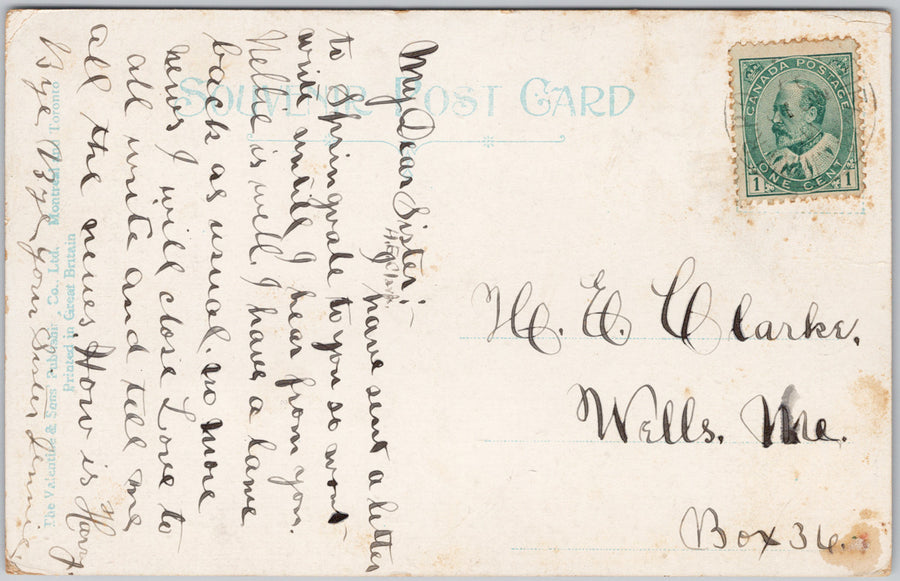 SOUVENIR POST CARD
CANADA POSTAGE
ONE CENT
1 1
My Dear Sister:-
I have sent a letter
to Springvale to you so wont
write until I hear from you.
Nellie is well. I have a lame
back as usual. no more
news I will close Love to
all write and tell me
all the news How is Harry
Bye Bye your Sister Jennie
H. E. Clarke.
Wells. Me.
Box 36.
The Valentine & Sons Publishing Co., Ltd. Montreal and Toronto
Printed in Great Britain